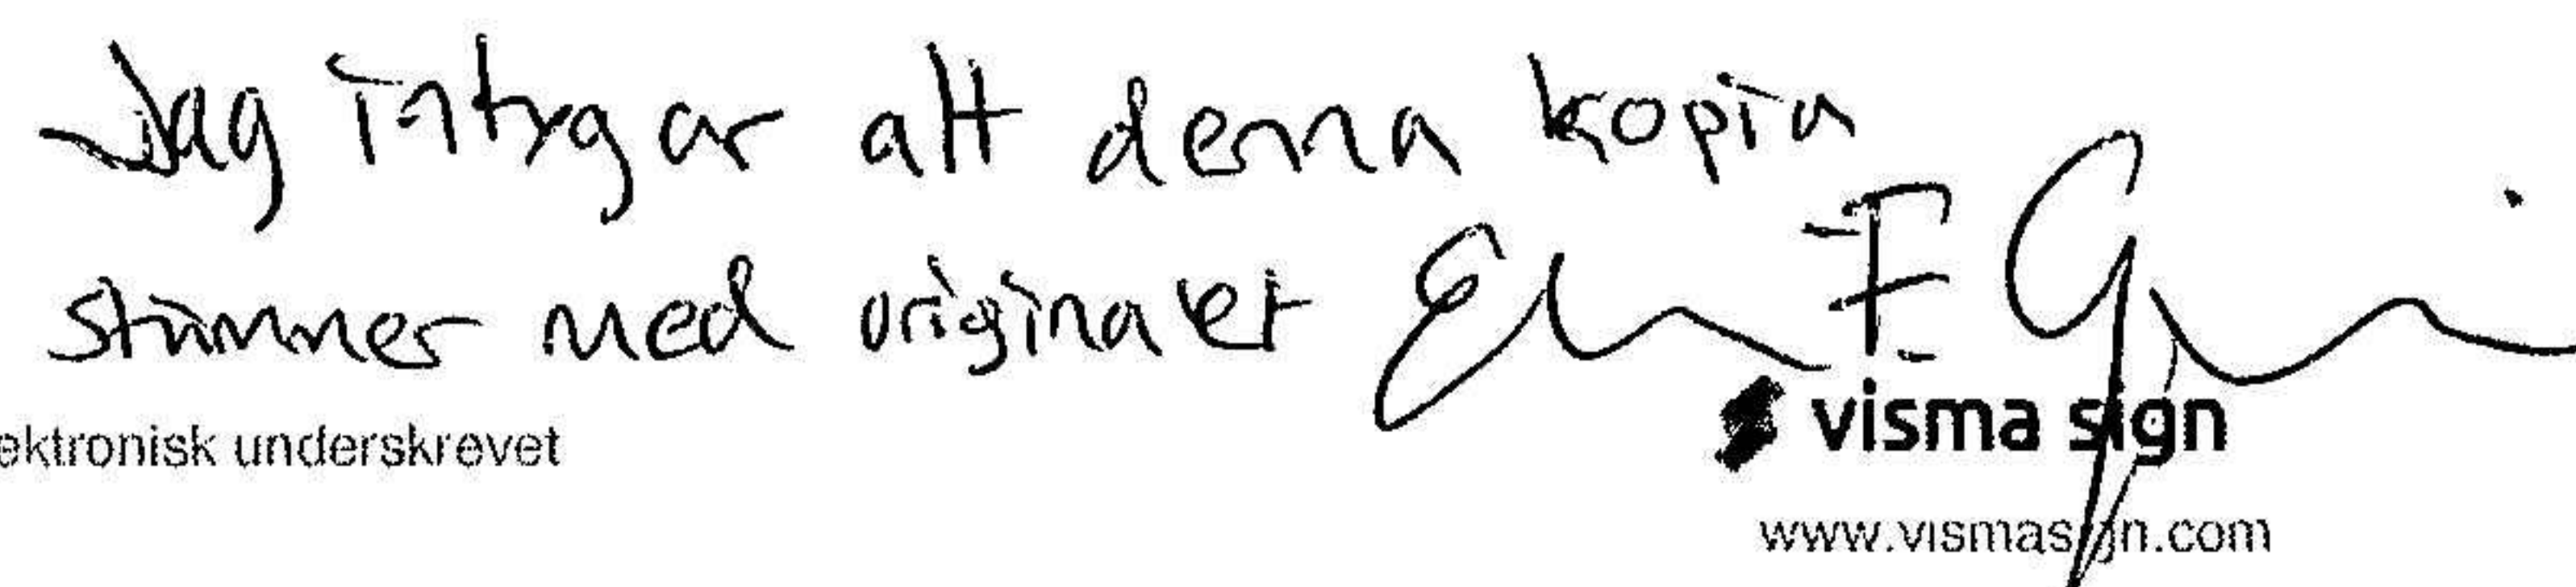 Jag intygar att denna kopia
stämmer med originalet
ektronisk underskrevet
visma sign
www.vismasign.com